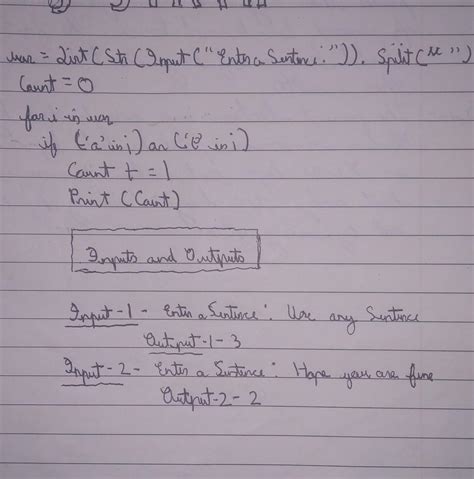 var = List(Str(Input("Enter a Sentence:")).Split(" ")
Count = 0
for i in var
if ('a' in i) or ('e' in i)
Count + = 1
Print (Count)
Inputs and Outputs
Input-1 - Enter a Sentence: Use any Sentence
Output-1-3
Input-2- Enter a Sentence: Hope you are fine
Output-2-2